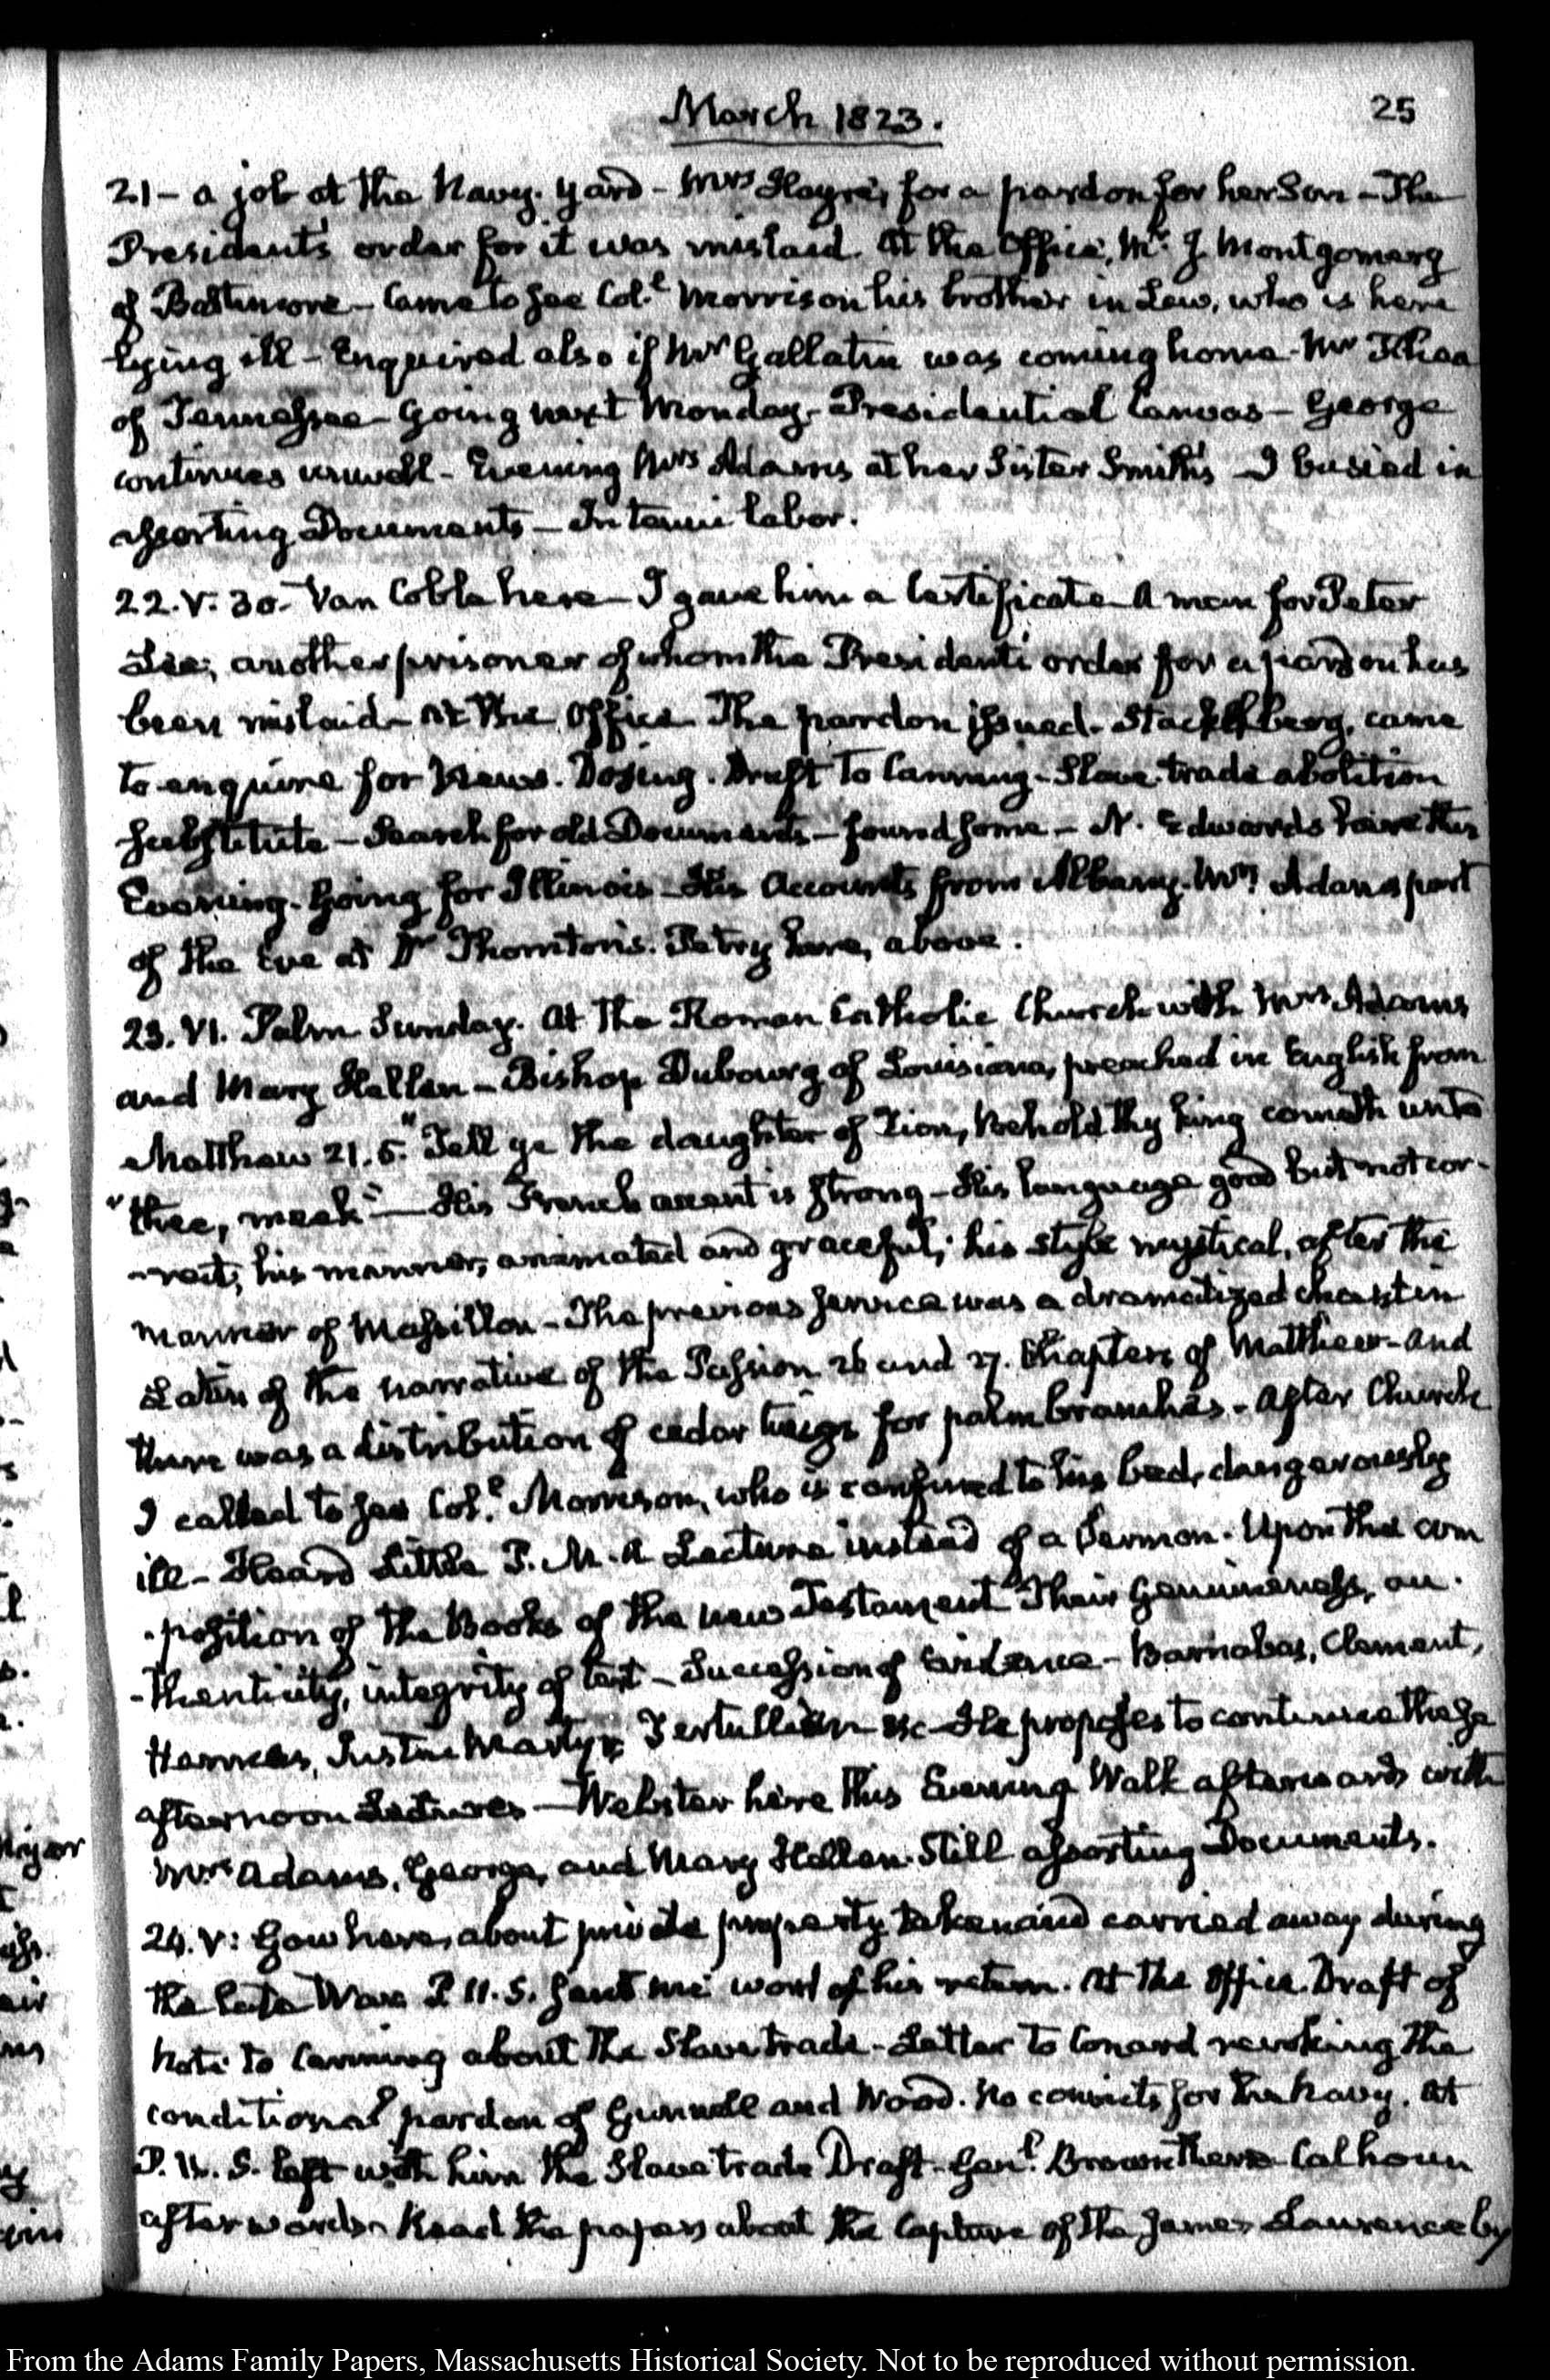 March 1823.
25
21 - a job at the Navy-Yard - Mrs Hayre, for a pardon for her Son - The
President's order for it was mislaid. At the Office, Mr. J Montgomery
of Baltimore - Came to see Col.l Morrison his brother in Law, who is here
lying ill - Enquired also if Mr Gallatin was coming home - Mr Rhea
of Tennessee - Going next Monday - Presidential Canvas - George
continues unwell - Evening Mrs Adams at her Sister Smith's - I busied in
assorting Documents - labor.
22. V. 30. Van Coble here - I gave him a Certificate - A man for Peter
Lee, another prisoner of whom the President's order for a pardon has
been mislaid - At the Office - The pardon issued - Stackelberg, came
to enquire for News. Dosing. Draft to Canning - Slave-trade abolition
substitute - Search for old Documents - found some - N. Edwards here this
Evening - Going for Illinois - His Accounts from Albany. Mrs Adams part
of the Eve at Dr Thornton's. Petry here, above.
23. VI. Palm Sunday. At the Roman Catholic Church with Mrs Adams
and Mary Hellen - Bishop Dubourg of Louisiana, preached in English from
Matthew 21. 5. "Tell ye the daughter of Zion, Behold thy king cometh unto
"thee, meek" - His French accent is strong - His language good but not cor-
-rect; his manner, animated and graceful; his style mystical, after the
manner of Massillon - The previous service was a dramatized chaunt in
Latin of the narrative of the Passion 26 and 27. Chapters of Matthew - and
there was a distribution of cedar twigs for palm branches - After Church
I called to see Col.l Morrison, who is confined to his bed, dangerously
ill - Heard Little P.M. A Lecture instead of a Sermon. Upon the com
-position of the Books of the new Testament Their Genuineness, au-
-thenticity, integrity of text - Succession of Evidence - Barnabas, Clement,
Hermas, Justin Martyr Tertullian &c - He proposes to continue these
afternoon Lectures - Webster here this Evening Walk afterwards with
Mrs Adams, George, and Mary Hellen. Still assorting Documents.
24. V: Gow here, about private property taken and carried away during
the late War. P. U.S. sent me word of his return. At the Office. Draft of
Note to Canning about the Slave trade - Letter to Conard revoking the
conditional pardon of Gunnell and Wood. No convicts for the Navy. At
P. U. S. left with him the Slave trade Draft - Gen.l Brown there - Calhoun
afterwards - Read the papers about the Capture of the James Laurence by
From the Adams Family Papers, Massachusetts Historical Society. Not to be reproduced without permission.